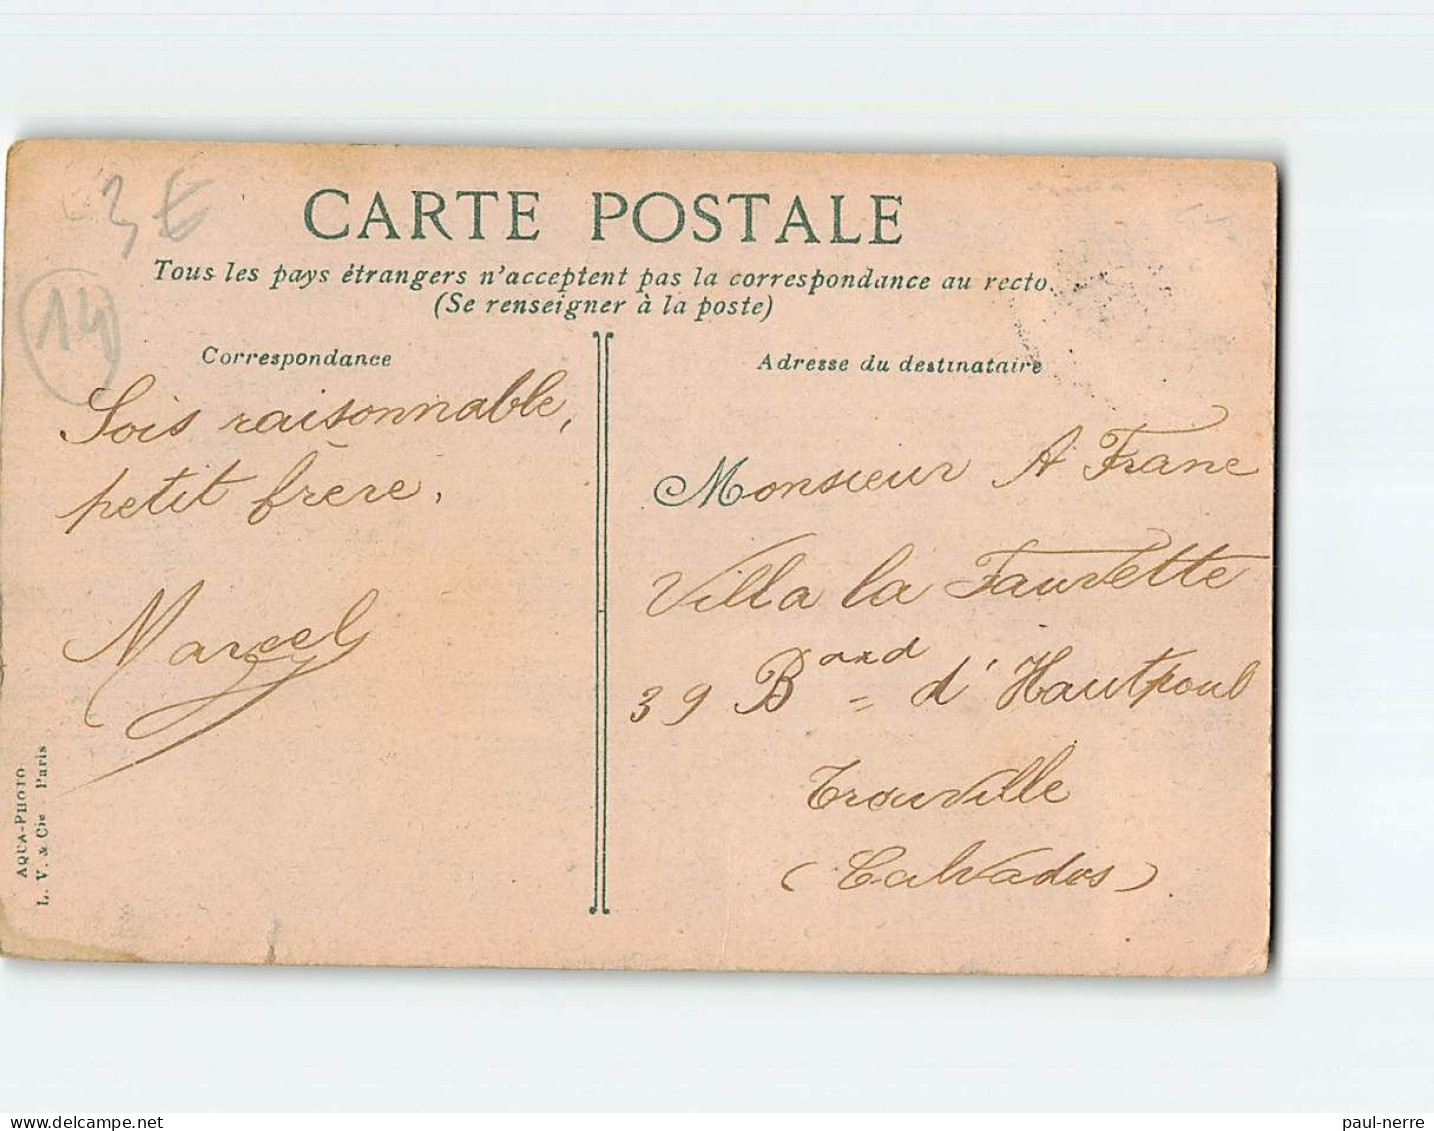 3 €
14
CARTE POSTALE
Tous les pays étrangers n'acceptent pas la correspondance au recto
(Se renseigner à la poste)
Correspondance
Sois raisonnable,
petit frère.
Marcel
AQUA-PHOTO
L. V. & Cie Paris
Adresse du destinataire
Monsieur A Franc
Villa la Fauvette
39 Bard d'Hautpoul
Trouville
(Calvados)
delcampe.net
paul-nerre